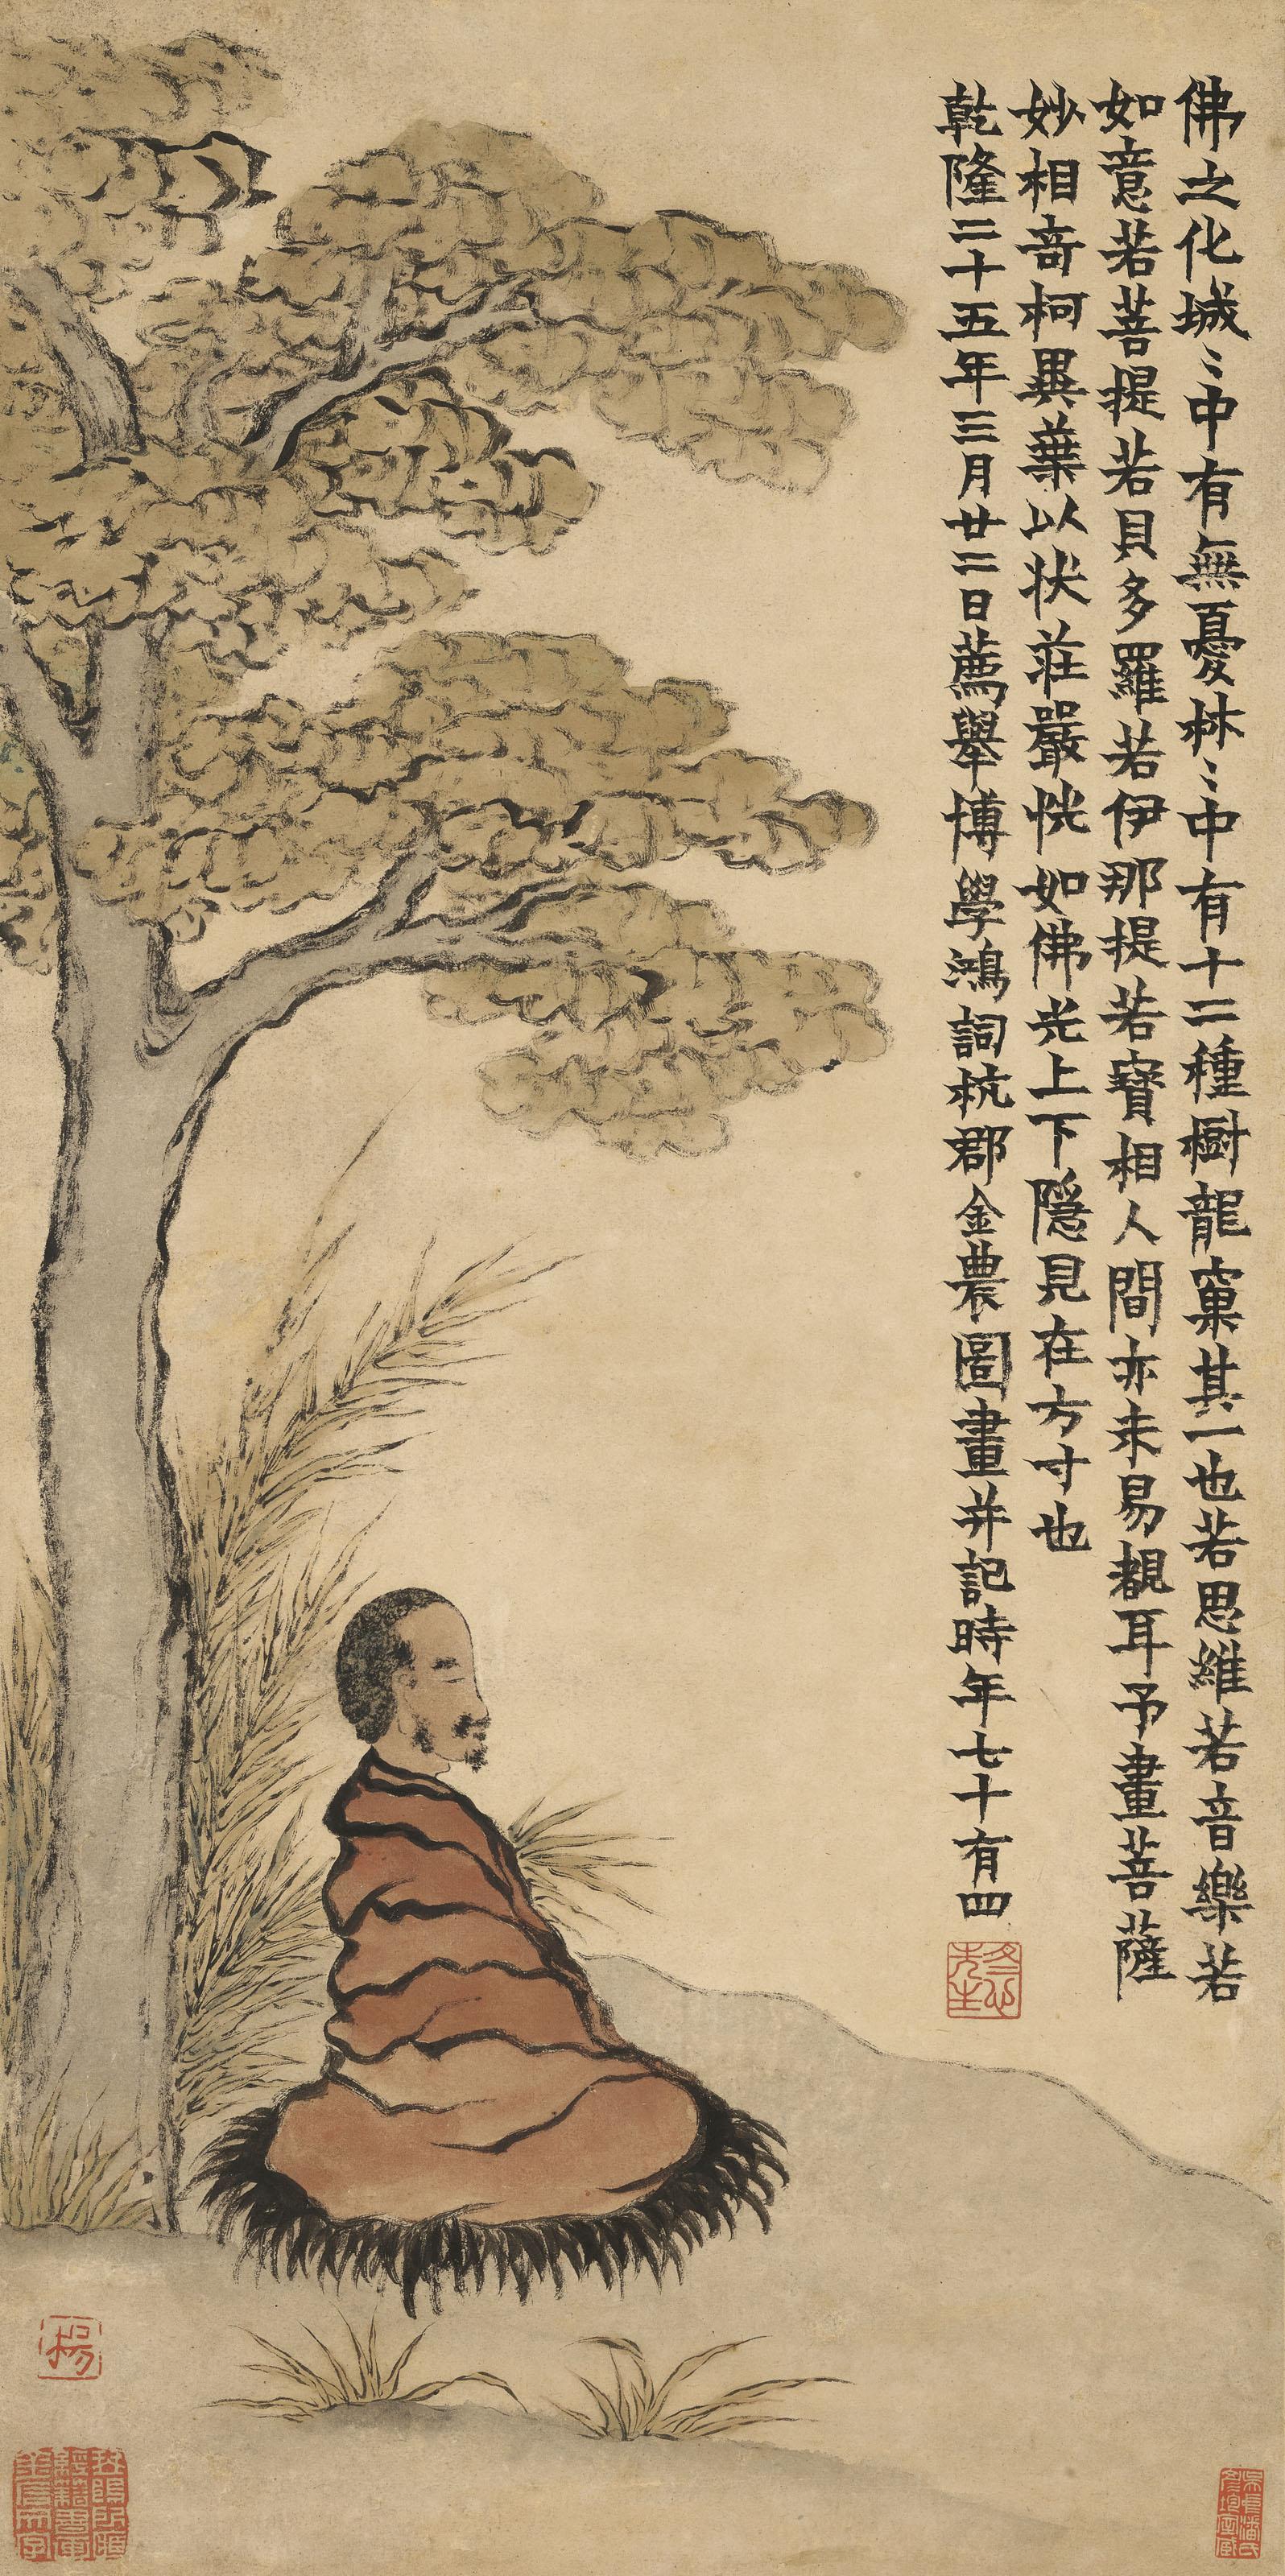 佛之化城〻中有無憂林〻中有十二種樹龍窠其一也若思維若音樂若
如意若菩提若貝多羅若伊那提若寶相人間亦未易覩耳予畫菩薩
妙相奇柯異葉以狀莊嚴恍如佛光上下隱見在方寸也
乾隆二十五年三月廿二日薦舉博學鴻詞杭郡金農圖畫并記時年七十有四
冬心先生